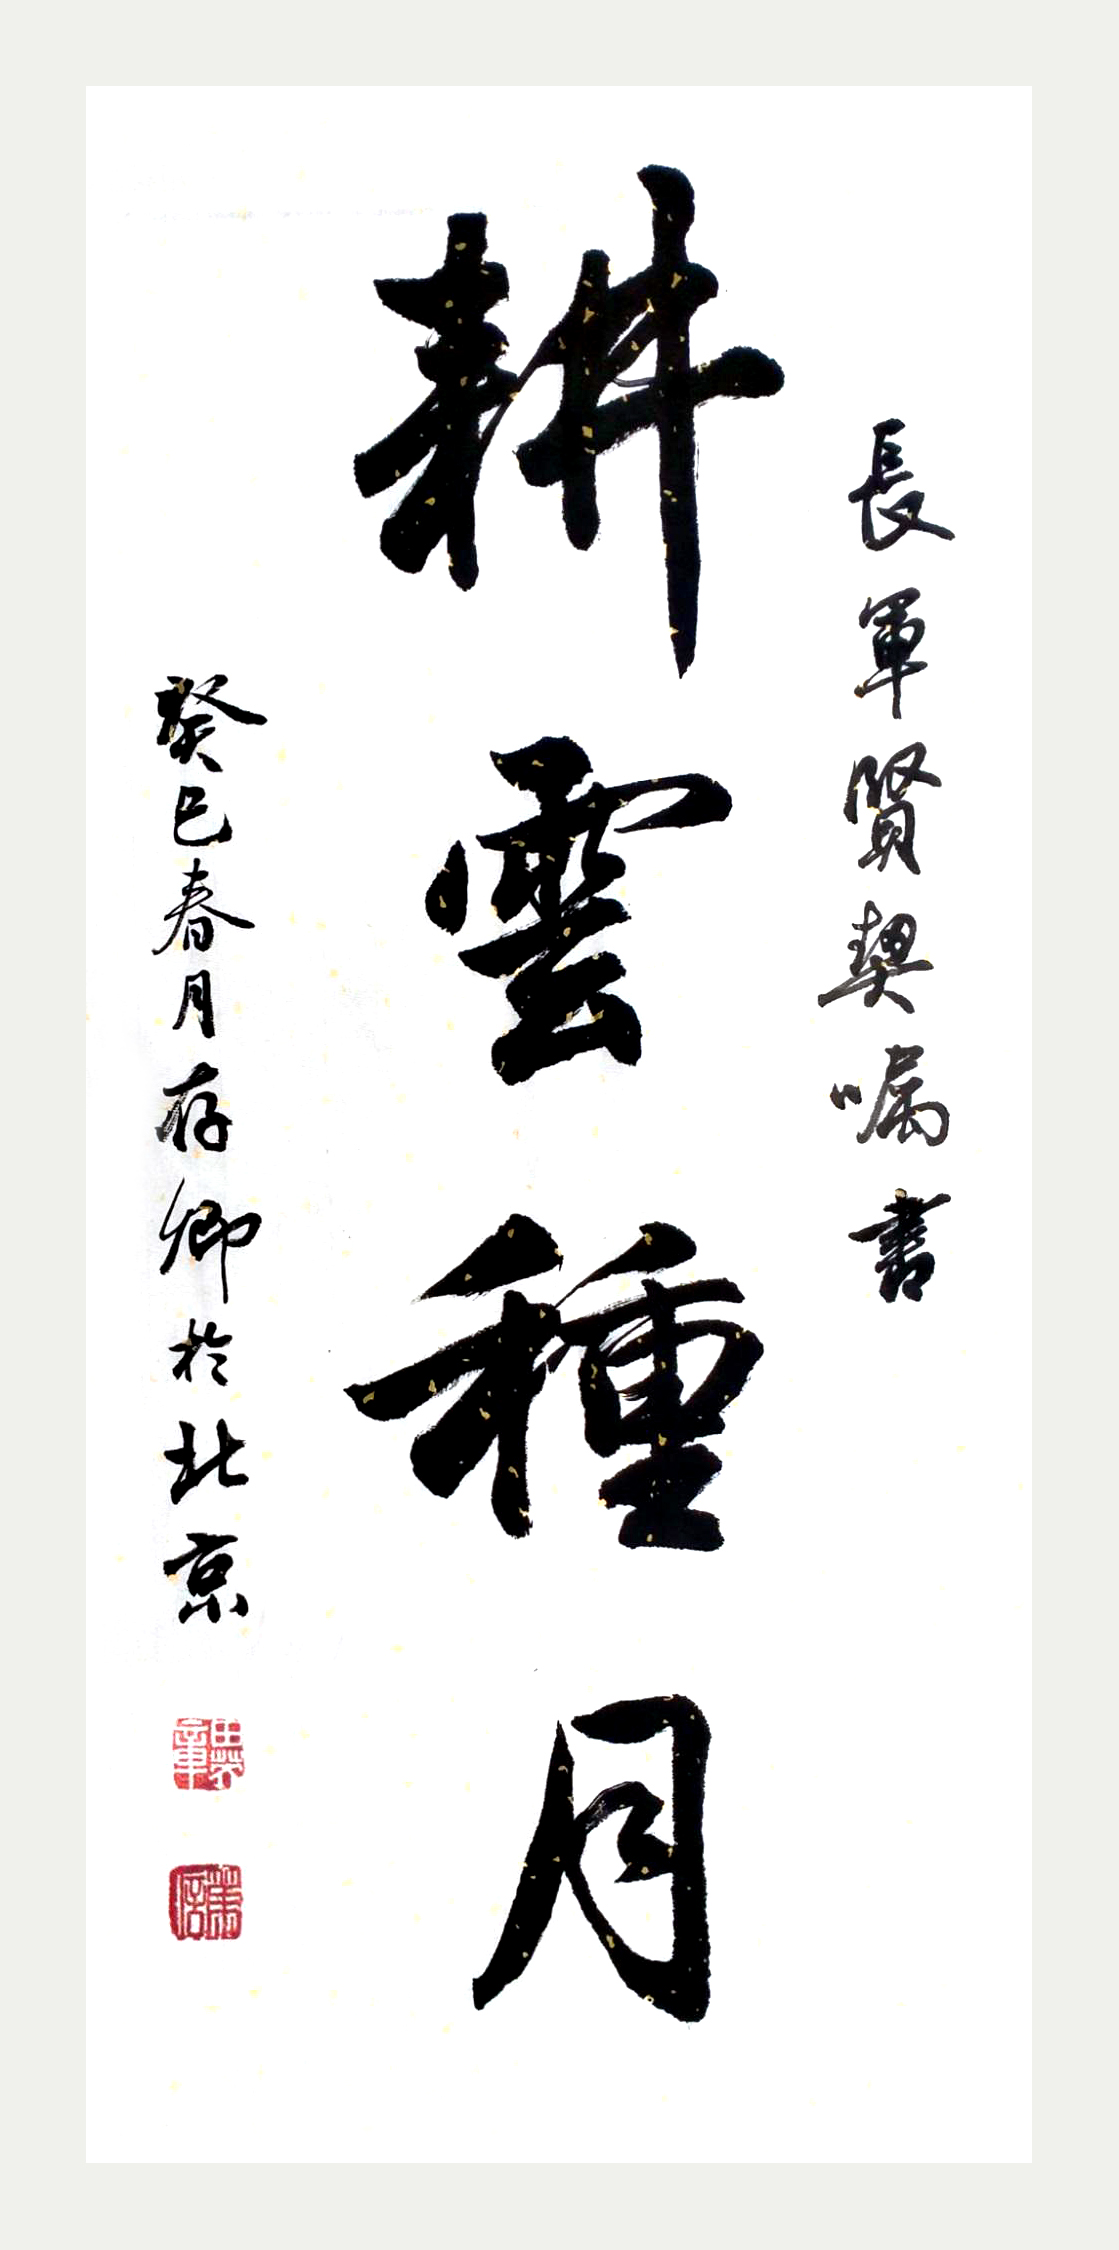 長軍賢契嘱書
耕雲種月
癸巳春月存卿於北京